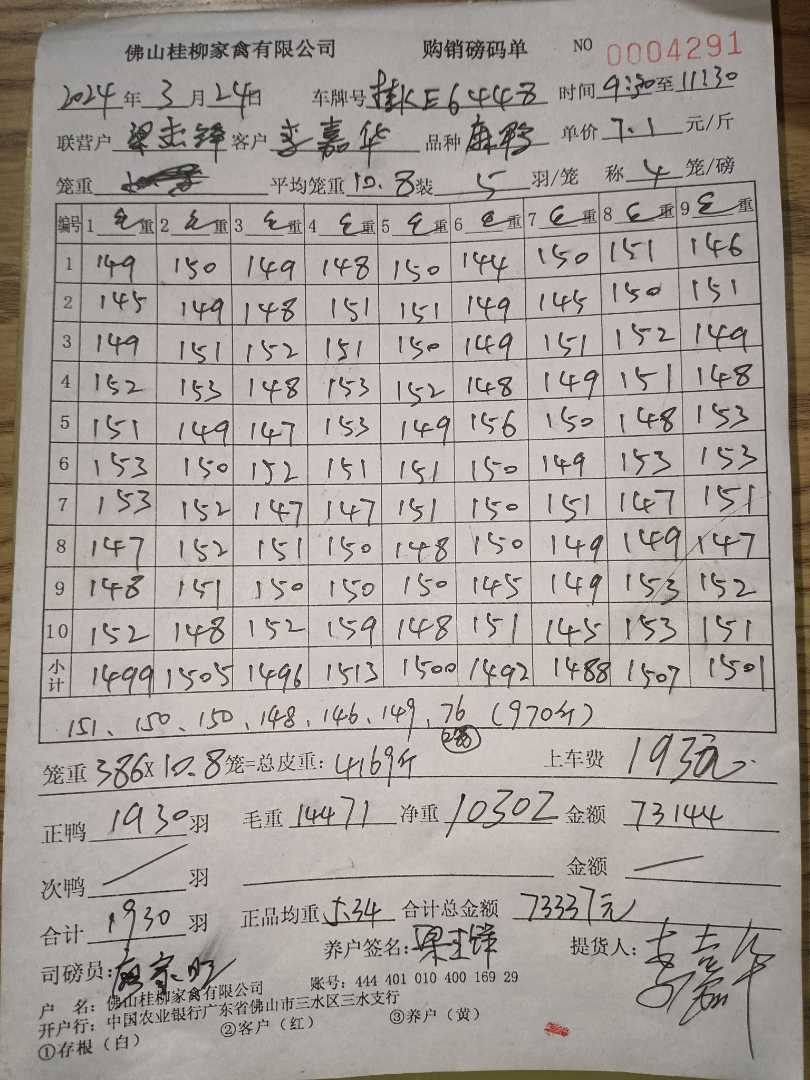 佛山桂柳家禽有限公司 购销磅码单 NO 0004291
2024年3月24日 车牌号桂KE6448 时间9:30至11:30
联营户 梁志锋 客户 李嘉华 品种 麻鸭 单价 7.1 元/斤
笼重 平均笼重10.8装 5 羽/笼 称 4 笼/磅
编号 1 毛重 2 毛重 3 毛重 4 毛重 5 毛重 6 毛重 7 毛重 8 毛重 9 毛重
1 149 150 149 148 150 144 150 151 146
2 145 149 148 151 151 149 145 150 151
3 149 151 152 151 150 149 151 152 149
4 152 153 148 153 152 148 149 151 148
5 151 149 147 153 149 156 150 148 153
6 153 150 152 151 151 150 149 153 153
7 153 152 147 147 151 150 151 147 151
8 147 152 151 150 148 150 149 149 147
9 148 151 150 150 150 145 149 153 152
10 152 148 152 159 148 151 145 153 151
小计 1499 1505 1496 1513 1500 1492 1488 1507 1501
151、150、150、148、146、149、76 (970斤)
2笼
笼重 386×10.8笼=总皮重: 4169斤 上车费 193元
正鸭 1930 羽 毛重 14471 净重 10302 金额 73144
次鸭 羽 金额
合计 1930 羽 正品均重 5.34 合计总金额 73337元
养户签名: 梁志锋 提货人: 李嘉华
司磅员:
户 名: 佛山桂柳家禽有限公司 账号: 444 401 010 400 169 29
开户行: 中国农业银行广东省佛山市三水区三水支行
①存根（白） ②客户（红） ③养户（黄）